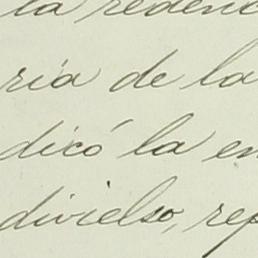 la redenc
ria de la
dicó la en
divielso, rep